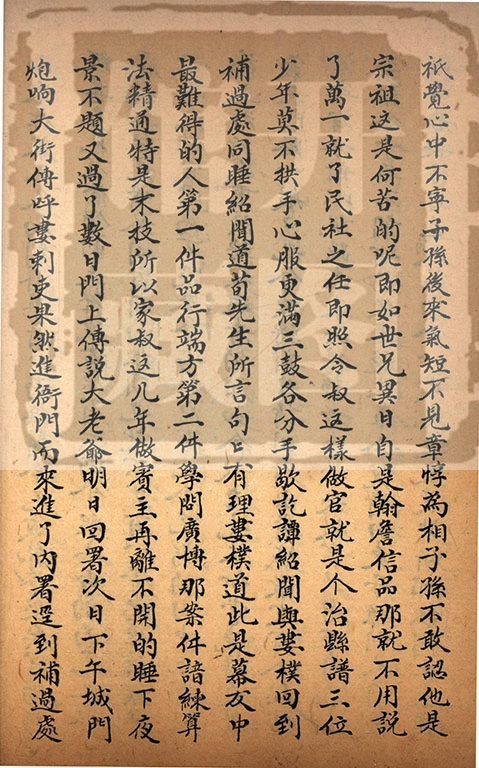 祇覺心中不寧子孫後來氣短不見章惇為相子孫不敢認他是
宗祖这是何苦的呢即如世兄異日自是翰詹信品那就不用說
了萬一就了民社之任即照令叔这樣做官就是个治縣譜三位
少年莫不拱手心服更滿三鼓各分手歇訖譚紹聞與婁樸回到
補過處同睡紹聞道荀先生所言句句有理婁樸道此是幕友中
最難得的人第一件品行端方第二件學問廣博那案件諳練算
法精通特是末技所以家叔这几年做賓主再離不開的睡下夜
景不題又過了數日門上傳說大老爺明日回署次日下午城門
炮响大街傳呼婁刺史果然進衙門而來進了內署逕到補過處